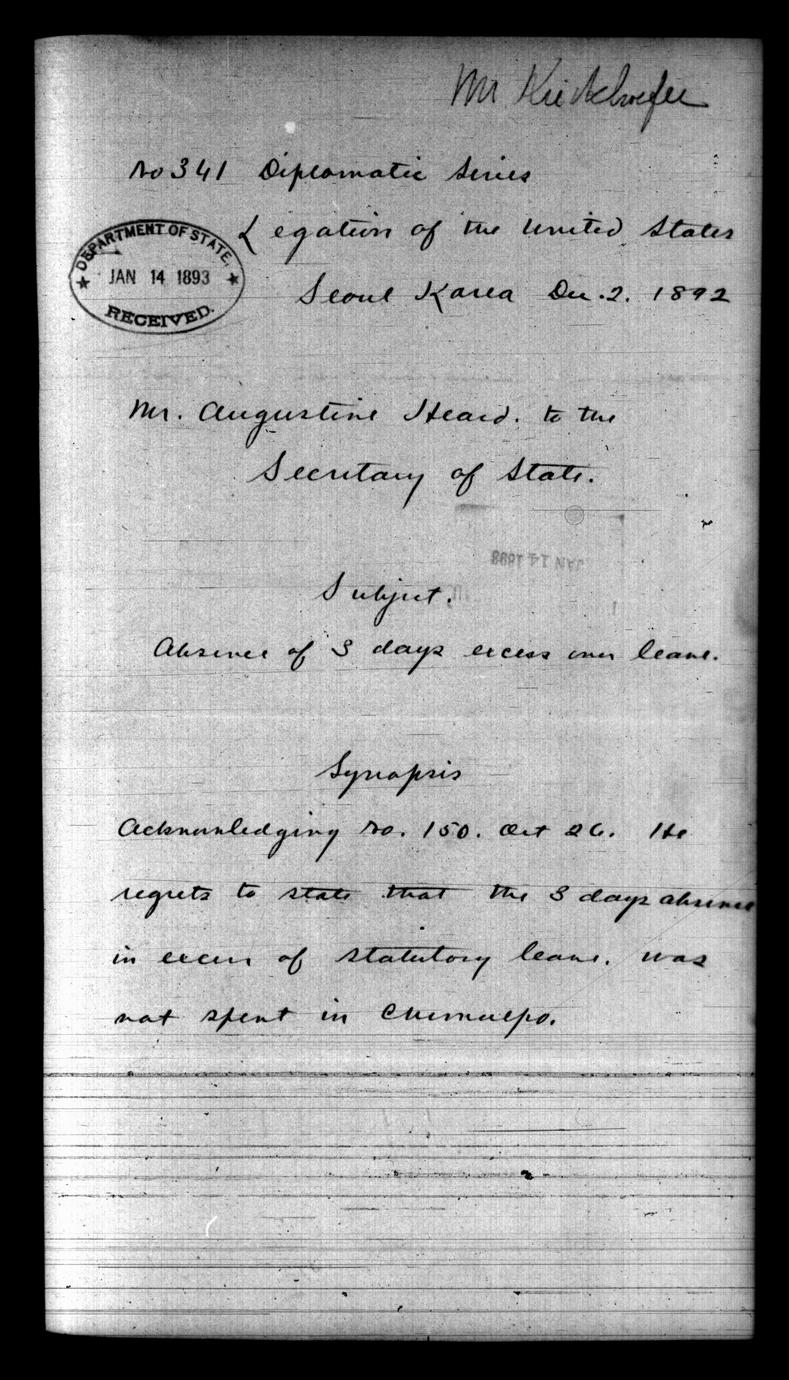 Mr Kieckhoefer
No 341 Diplomatic Series
Legation of the United States
DEPARTMENT OF STATE,
JAN 14 1893
RECEIVED.
Seoul Korea Dec. 2. 1892
Mr. Augustine Heard. to the
Secretary of State.
JAN 14 1893
Subject.
Absence of 3 days excess over leave.
Synopsis
Acknowledging No. 150. Oct 26. He
regrets to state that the 3 days absence
in excess of statutory leave. was
not spent in Chemulpo.